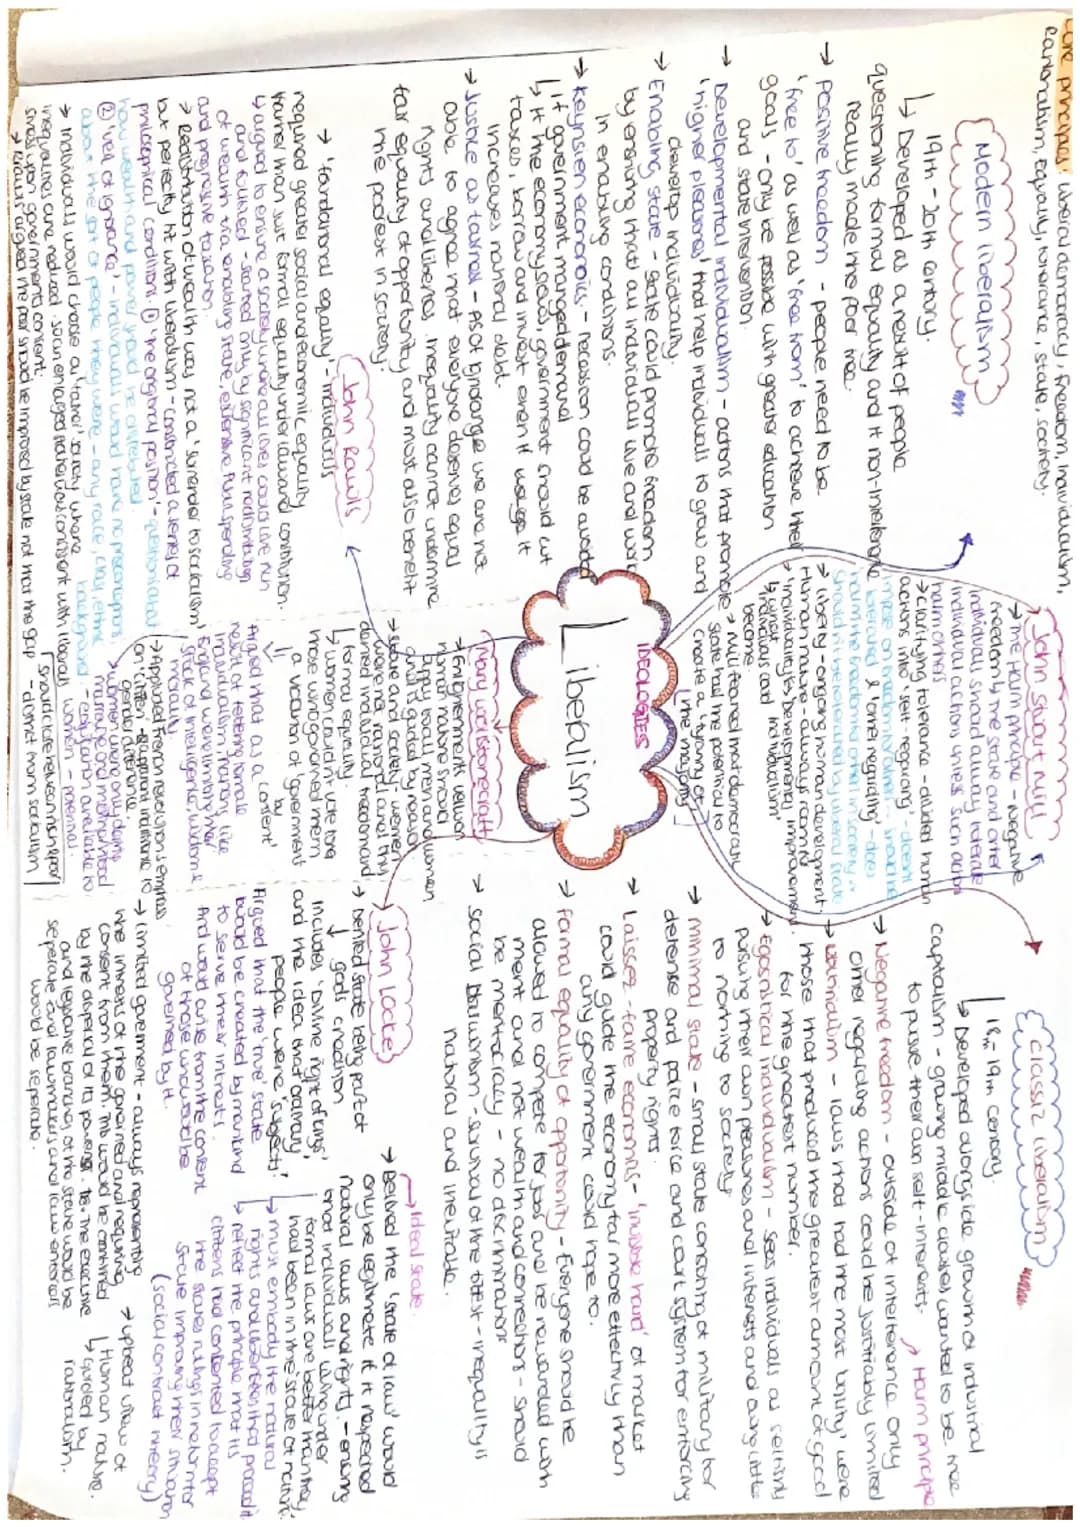 Core principles: liberal democracy, freedom, individualism,
Rationalism, Equality, tolerance, state, society.
Modern liberalism
19th - 20th century.
↳ Developed as a result of people
questioning formal equality and if non-interference
really made the poor free.
→ Positive freedom - people need to be
'free to' as well as 'free from' to achieve their
goals - only be possible with greater education
and state intervention.
→ Developmental individualism - actions that promote
'higher pleasures' that help individuals to grow and
develop individually.
→ Enabling state - state could promote freedom
by ensuring that all individuals live and work
in enabling conditions.
→ Keynsien economics - recession could be avoided
if government managed demand
↳ if the economy slows, government should cut
taxes, borrow and invest even if it
increases national debt.
→ Justice as fairness - As of ignorance we are not
able to agree that everyone deserves equal
rights and liberties. Inequality cannot undermine
fair equality of opportunity and must also benefit
the poorest in society.
John Rawls
→ 'foundational equality' - individuals
required greater social and economic equality
rather than just formal equality under law and constitution.
↳ argued to ensure a society where all lives could live run
and fulfilled - started only by significant redistribution
of wealth via enabling state, extensive public spending
and progressive taxation.
→ Redistribution of wealth was not a 'surrender to socialism'
but perfectly fit with liberalism - constructed a series of
philosophical conditions. ① The original position' - questioned about
how wealth and power should be distributed.
② 'veil of ignorance' - individuals would have no preconceptions
about the sort of people they were - any race, class, ethnic
background
→ individuals would choose a 'fairer' society where
inequalities are reduced. So an enlarged state was consistent with liberal
stress upon government by consent.
→ Rawls argued the poor should be improved by state not that the gap
should reduce between rich + poor
- distinct from socialism
IDEOLOGIES
Liberalism
John Stuart Mill
→ The Harm principle - negative
freedom by the state and other
individuals should always tolerate
individuals actions unless such action
harm others
→ Clarifying tolerance - divided human
actions into 'self-regarding' - doesn't
impose on freedom of others - should be
tolerated & 'other regarding' - does
harm the freedoms of other in society -
shouldn't be tolerated by liberal state
→ liberty - ongoing human development.
Human nature - always room for
improvement
→ 'Individuality' developmental
'individualism'
→ Mill feared that democratic
state had the potential to
create a 'tyranny of
the majority'
Mary Wollstonecraft
→ Enlightenments view on
human nature should
apply to all men and women
and is guided by reason.
→ state and society: women
weren't rational and thus
denied individual freedom and
formal equality.
↳ women couldn't vote for
those who governed them
a violation of 'government
by
consent'
Argued that as a
result of fettering female
individualism nations like
England were limiting their
stock of intelligence, wisdom &
morality
→ Applauded French revolution's emphasis
on 'citizen' - apparent indifference to
gender difference.
→ women were only doing
marriage and motherhood
- education available to
women - potential.
Classic liberalism
18th - 19th century
↳ Developed alongside growth of industrial
capitalism - growing middle classes wanted to be free
to pursue their own self-interests.
↗ Harm principle
→ Negative freedom - outside of interference only
other regarding actions could be justifiably limited
→ Utilitarianism - laws that had the most 'utility' were
those that produced the greatest amount of good
for the greatest number.
→ Egostical individualism - sees individuals as selfishly
pursuing their own pleasures and interests and owing little
to nothing to society
→ Minimal state - small state consisting of military for
defense and police force and court system for enforcing
property rights.
→ Laissez-faire economics - 'invisible hand' of market
could guide the economy far more effectively than
any government could hope to.
→ Formal equality of opportunity - Everyone should be
allowed to compete for jobs and be rewarded with
merit and not wealth and connections - should
be meritocracy - no discrimination
→ Social Darwinism - survival of the fittest - inequality is
natural and inevitable.
John Locke
→ Denied state being part of
↓ gods creation
includes 'Divine right of kings'
and the idea that ordinary
people were 'subjects'.
Argued that the 'true' state
would be created by mankind
to serve their interest.
And would arise from the consent
of those who would be
governed by it.
→ Limited government - always representing
the interests of the governed and requiring
consent from them. This would be confined
by the dispersal of its powers. i.e. the executive
and legislative branches of the state would be
separate and lawmakers and law enforcers
would be seperate.
→ Ideal state.
→ Belived the 'state of law' would
only be legitimate if it respected
natural laws and rights - ensuring
that individuals living under
formal laws are better than they
had been in the state of nature.
↳ must embody the natural
rights and liberties that preceed it
↳ reflect the principle that its
citizens had consented to accept
the states rulings in return for
state improving their situation
(social contract theory)
→ upbeat view of
Human nature.
↳ guided by
rationalism.